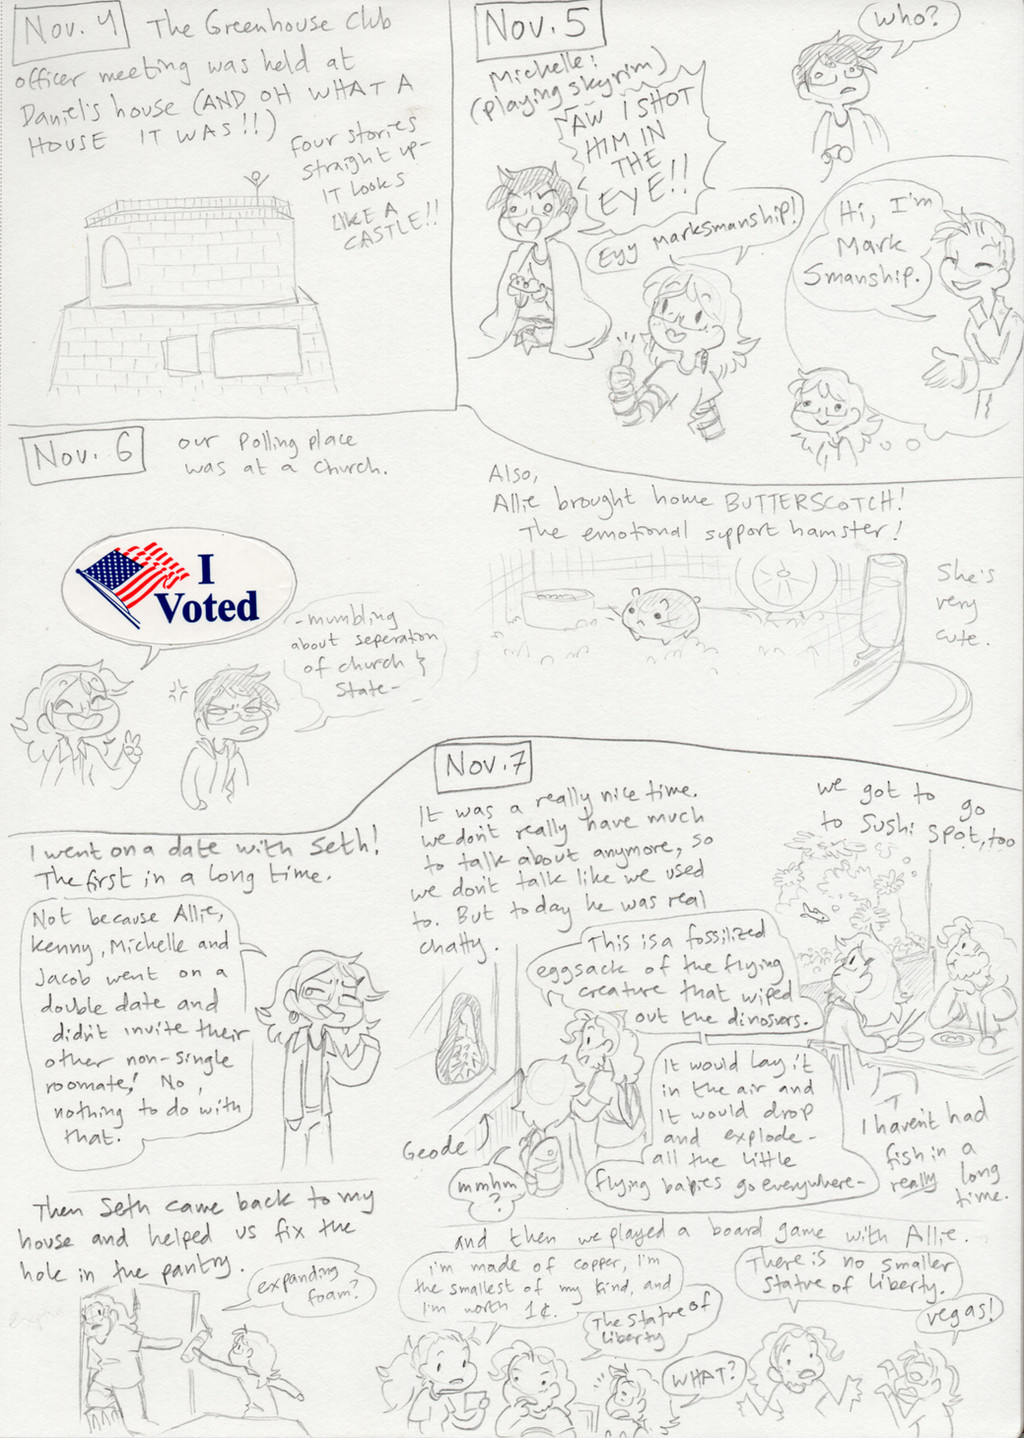 Nov. 4 The Greenhouse Club
officer meeting was held at
Daniel's house (AND OH WHAT A
HOUSE IT WAS!!)
four stories
straight up-
IT looks
LIKE A
CASTLE!!
Nov. 5
Michelle:
(playing skyrim)
AW I SHOT
HIM IN
THE
EYE!!
Eyy marksmanship!
who?
Hi, I'm
Mark
Smanship.
Nov. 6
our polling place
was at a church.
I
Voted
-mumbling
about seperation
of church &
state-
Also,
Allie brought home BUTTERSCOTCH!
The emotional support hamster!
She's
very
cute.
I went on a date with Seth!
The first in a long time.
Not because Allie,
Kenny, Michelle and
Jacob went on a
double date and
didn't invite their
other non-single
roomate! No,
nothing to do with
that.
Then Seth came back to my
house and helped us fix the
hole in the pantry.
expanding
foam?
Nov. 7
It was a really nice time.
we don't really have much
to talk about anymore, so
we don't talk like we used
to. But today he was real
chatty.
This is a fossilized
eggsack of the flying
creature that wiped
out the dinosars.
It would lay it
in the air and
it would drop
and explode-
all the little
flying babies go everywhere-
Geode
mmhm
?
we got to go
to Sushi spot, too
I haven't had
fish in a
really long
time.
and then we played a board game with Allie.
I'm made of copper, I'm
the smallest of my kind, and
I'm worth 1¢.
The Statue of
liberty
WHAT?
There is no smaller
statue of liberty.
vegas!